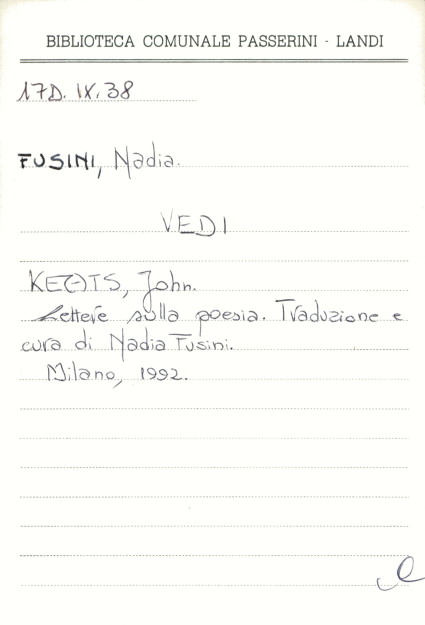 BIBLIOTECA COMUNALE PASSERINI - LANDI
17D. IX. 38
FUSINI, Nadia.
VEDI
KEATS, John.
Lettere sulla poesia. Traduzione e
cura di Nadia Fusini.
Milano, 1992.